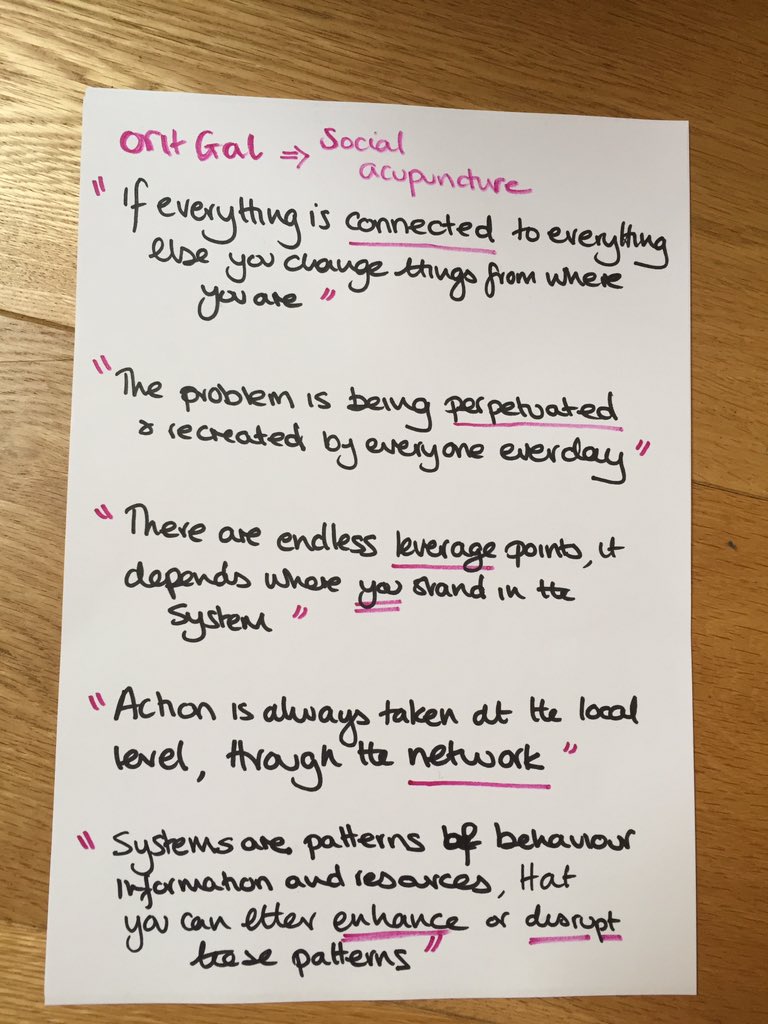 Orit Gal ⇒ Social
acupuncture
"If everything is connected to everything
else you change things from where
you are"
"The problem is being perpetuated
& recreated by everyone everday"
"There are endless leverage points, it
depends where you stand in the
system"
"Action is always taken at the local
level, through the network"
"Systems are patterns of behaviour
information and resources, that
you can etter enhance or disrupt
these patterns"